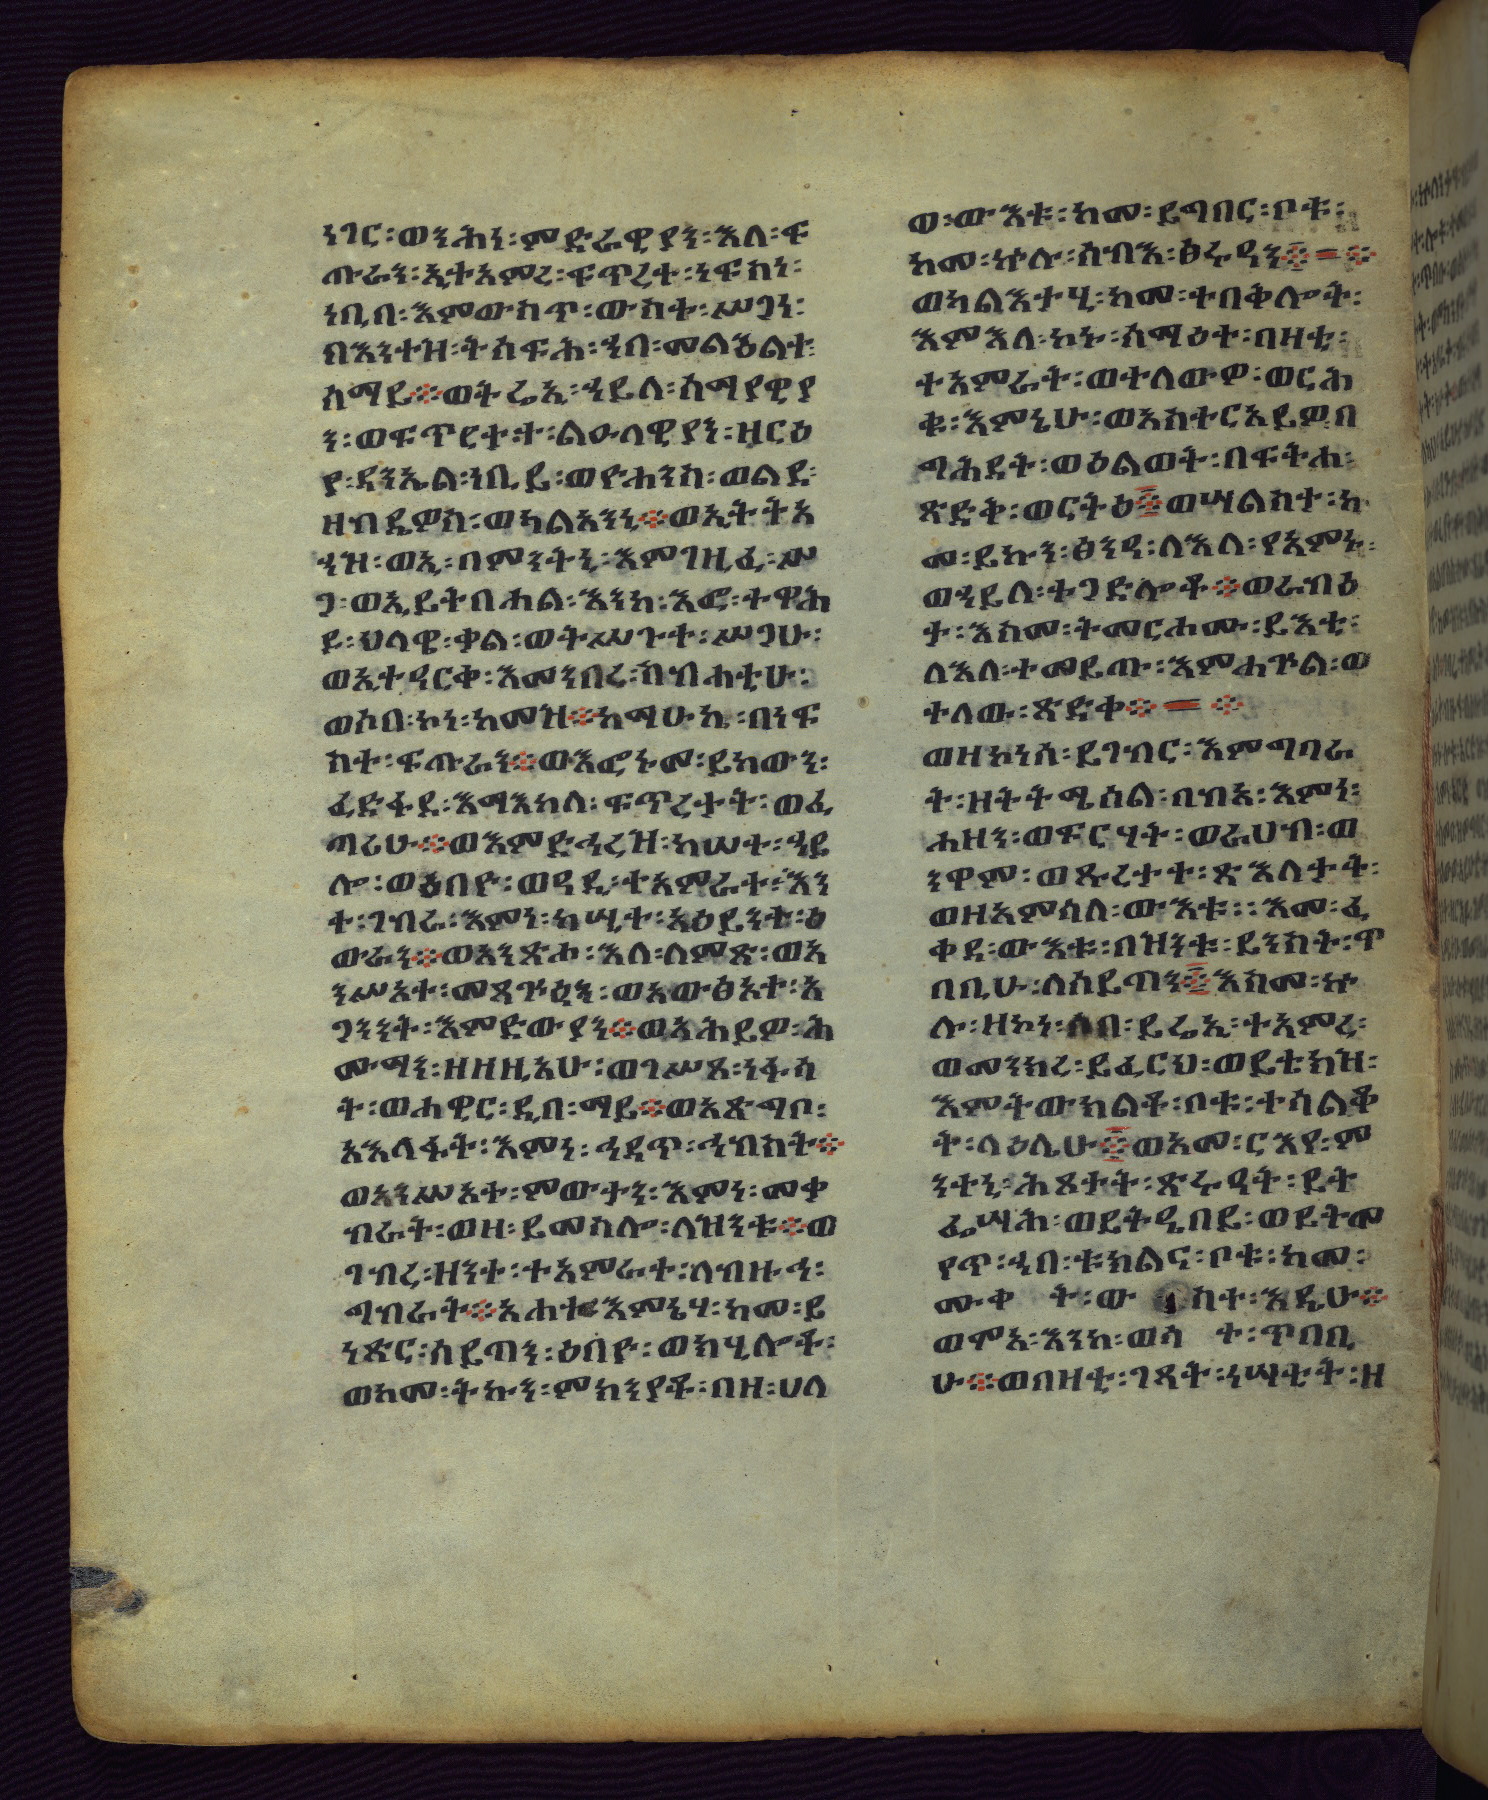 ነገር፡ወንሕነ፡ምድራዊያን፡እለ፡ፍ
ጡራን፡ኢተአምረ፡ፍጥረተ፡ነፍስነ፡
ነቢበ፡እምውስጥ፡ውስተ፡ሥጋነ፡
በእንተዝ፡ትሰፍሕ፡ኀበ፡መልዕልተ፡
ሰማይ፨ወትሬኢ፡ኀይለ፡ሰማያዊያ
ን፡ወፍጥረታተ፡ልዑላዊያን፡ዘርዕ
ያ፡ዳንኤል፡ነቢይ፡ወዮሐንስ፡ወልደ፡
ዘብዴዎስ፡ወካልእንኒ፨ወኢትትአ
ኀዝ፡ወኢ፡በምንትኒ፡እምገዚፈ፡ሥ
ጋ፡ወኢይትበሐል፡እንከ፡እፎ፡ተዋሕ
ደ፡ህላዌ፡ቃል፡ወትሥጉተ፡ሥጋሁ፡
ወኢተዳርቀ፡እመንበረ፡ስብሐቲሁ፡
ወሶበ፡ኮነ፡ከመዝ፨ከማሁኬ፡በነፍ
ስተ፡ፍጡራን፨ወእፎኑመ፡ይከውን፡
ፈድፋደ፡እማእከለ፡ፍጥረታት፡ወፈ
ጣሪሁ፨ወእምድኀረዝ፡ከሠተ፡ኀይ
ሎ፡ወዕበዮ፡ወዳዴ፡ተአምራተ፡እን
ተ፡ገብረ፡እምነ፡ከሢተ፡አዕይንተ፡ዕ
ውራን፨ወአንጽሐ፡እለ፡ለምጽ፡ወአ
ንሥአተ፡መጻጕዒን፡ወአውፅአተ፡አ
ጋንንት፡እምድውያን፨ወአሕይዎ፡ሕ
ሙማን፡ዘዘዚአሁ፡ወገሥጾ፡ነፋሳ
ት፡ወሐዊር፡ዲበ፡ማይ፨ወአጽግቦ፡
አእላፋት፡እምነ፡ኀዳጥ፡ኀብስት፨
ወአንሥአተ፡ምውታን፡እምነ፡መቃ
ብራት፡ወዘ፡ይመስሎ፡ለዝንቱ፨ወ
ገብረ፡ዘንተ፡ተአምራተ፡ለብዙኀ፡
ግብራት፨አሐተ፡እምኔሃ፡ከመ፡ይ
ነጽር፡ሰይጣን፡ዕበዮ፡ወክሂሎቶ፡
ወከመ፡ትኩን፡ምክንያቶ፡በዘ፡ሀለ
ወ፡ውእቱ፡ከመ፡ይግበር፡ቦቱ፡
ከመ፡ኵሉ፡ሰብእ፡ፅሩዳን፨=፨
ወካልእታሂ፡ከመ፡ተበቅሎት፡
እምእለ፡ኮኑ፡ሰማዕተ፡በዛቲ፡
ተአምራት፡ወተለውዎ፡ወርሕ
ቁ፡እምኔሁ፡ወአስተርአይዎ፡በ
ግሕደት፡ወዕልወት፡በፍትሐ፡
ጽድቅ፡ወርትዕ፨ወሣልስተ፡ከ
መ፡ይኩን፡ፅንዳ፡ለእለ፡የአምኑ፡
ወኀይለ፡ተጋድሎቶ፨ወራብዕ
ታ፡እስመ፡ትመርሖሙ፡ይእቲ፡
ለእለ፡ተመይጡ፡እምሐጕል፡ወ
ተለዉ፡ጽድቀ፨=፨
ወዘኮነሰ፡ይገብር፡እምግባራ
ት፡ዘትትሜሰል፡በብእ፡እምነ፡
ሐዘን፡ወፍርሃት፡ወራህብ፡ወ
ንዋም፡ወጹረታተ፡ጽእለታት፡
ወዘአምሰለ፡ውእቱ፡፡እመ፡ፈ
ቀደ፡ውእቱ፡በዝንቱ፡ይንስት፡ጥ
በቢሁ፡ለሰይጣን፨እስመ፡ኵ
ሉ፡ዘኮነ፡ሰበ፡ይሬኢ፡ተአምረ፡
ወመንክረ፡ይፈርህ፡ወይቲክዝ፡
እምትውክልቶ፡ቦቱ፡ተሳልቆ
ት፡ላዕሌሁ፨ወአመ፡ርእየ፡ም
ንተኒ፡ሕጸታት፡ጽሩዳት፡ይት
ፌሣሕ፡ወይትዔበይ፡ወይትመ
የጥ፡ኀበ፡ቱክልና፡ቦቱ፡ከመ፡
ሙቀ ት፡ው ስተ፡እዴሁ፨
ወሞአ፡እንከ፡ወሰ ተ፡ጥበቢ
ሁ፨ወበዛቲ፡ገጻት፡ነሣቲት፡ዘ